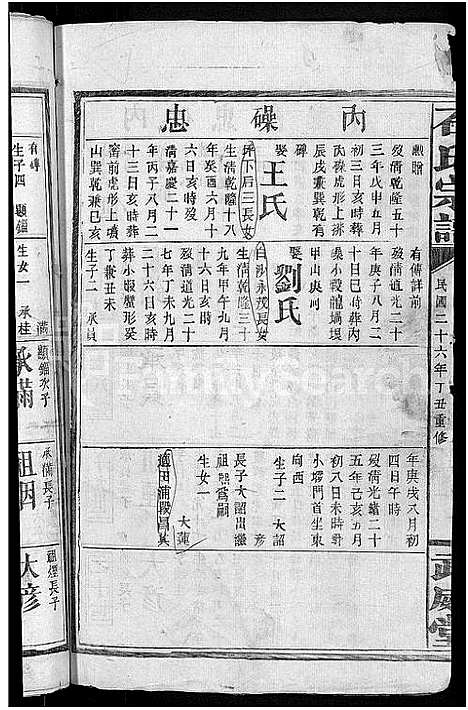 石氏宗譜
民國二十六年丁丑重修
武威堂
內磉忠
歿清乾隆五十
三年戊申五月
初三日亥時葬
內磉虎形上排
辰戌兼巽乾有
碑
娶王氏
坪下后三長女
生清乾隆十八
年癸酉六月十
六日亥時歿
清嘉慶二十一
年丙子八月二
十三日亥時葬
窑前虎形上墳
山巽乾兼巳亥
有傳詳前
歿清道光二十
年庚子八月二
十日巳時葬內
磉小段龍塲堤
甲山庚向
娶劉氏
白沙永茂長女
生清乾隆三十
九年甲午九月
十六日亥時
歿清道光二十
七年丁未九月
二十六日亥時
葬小腶蟹形癸
丁兼丑未
生子二 承員
年庚戌八月初
四日午時
歿清光緒二十
五年己亥五月
初八日未時葬
小塅門首坐東
向西
生子二 大詔
大彥
長子大詔出繼
祖熙爲嗣
生女一
大蓮
適田蒲段昌其
有傳
生子四 顯鑑
生女一
承桂
承滿
顯鑑次子
祖烟
承滿長子
大彦
祖煙長子
FamilySearch